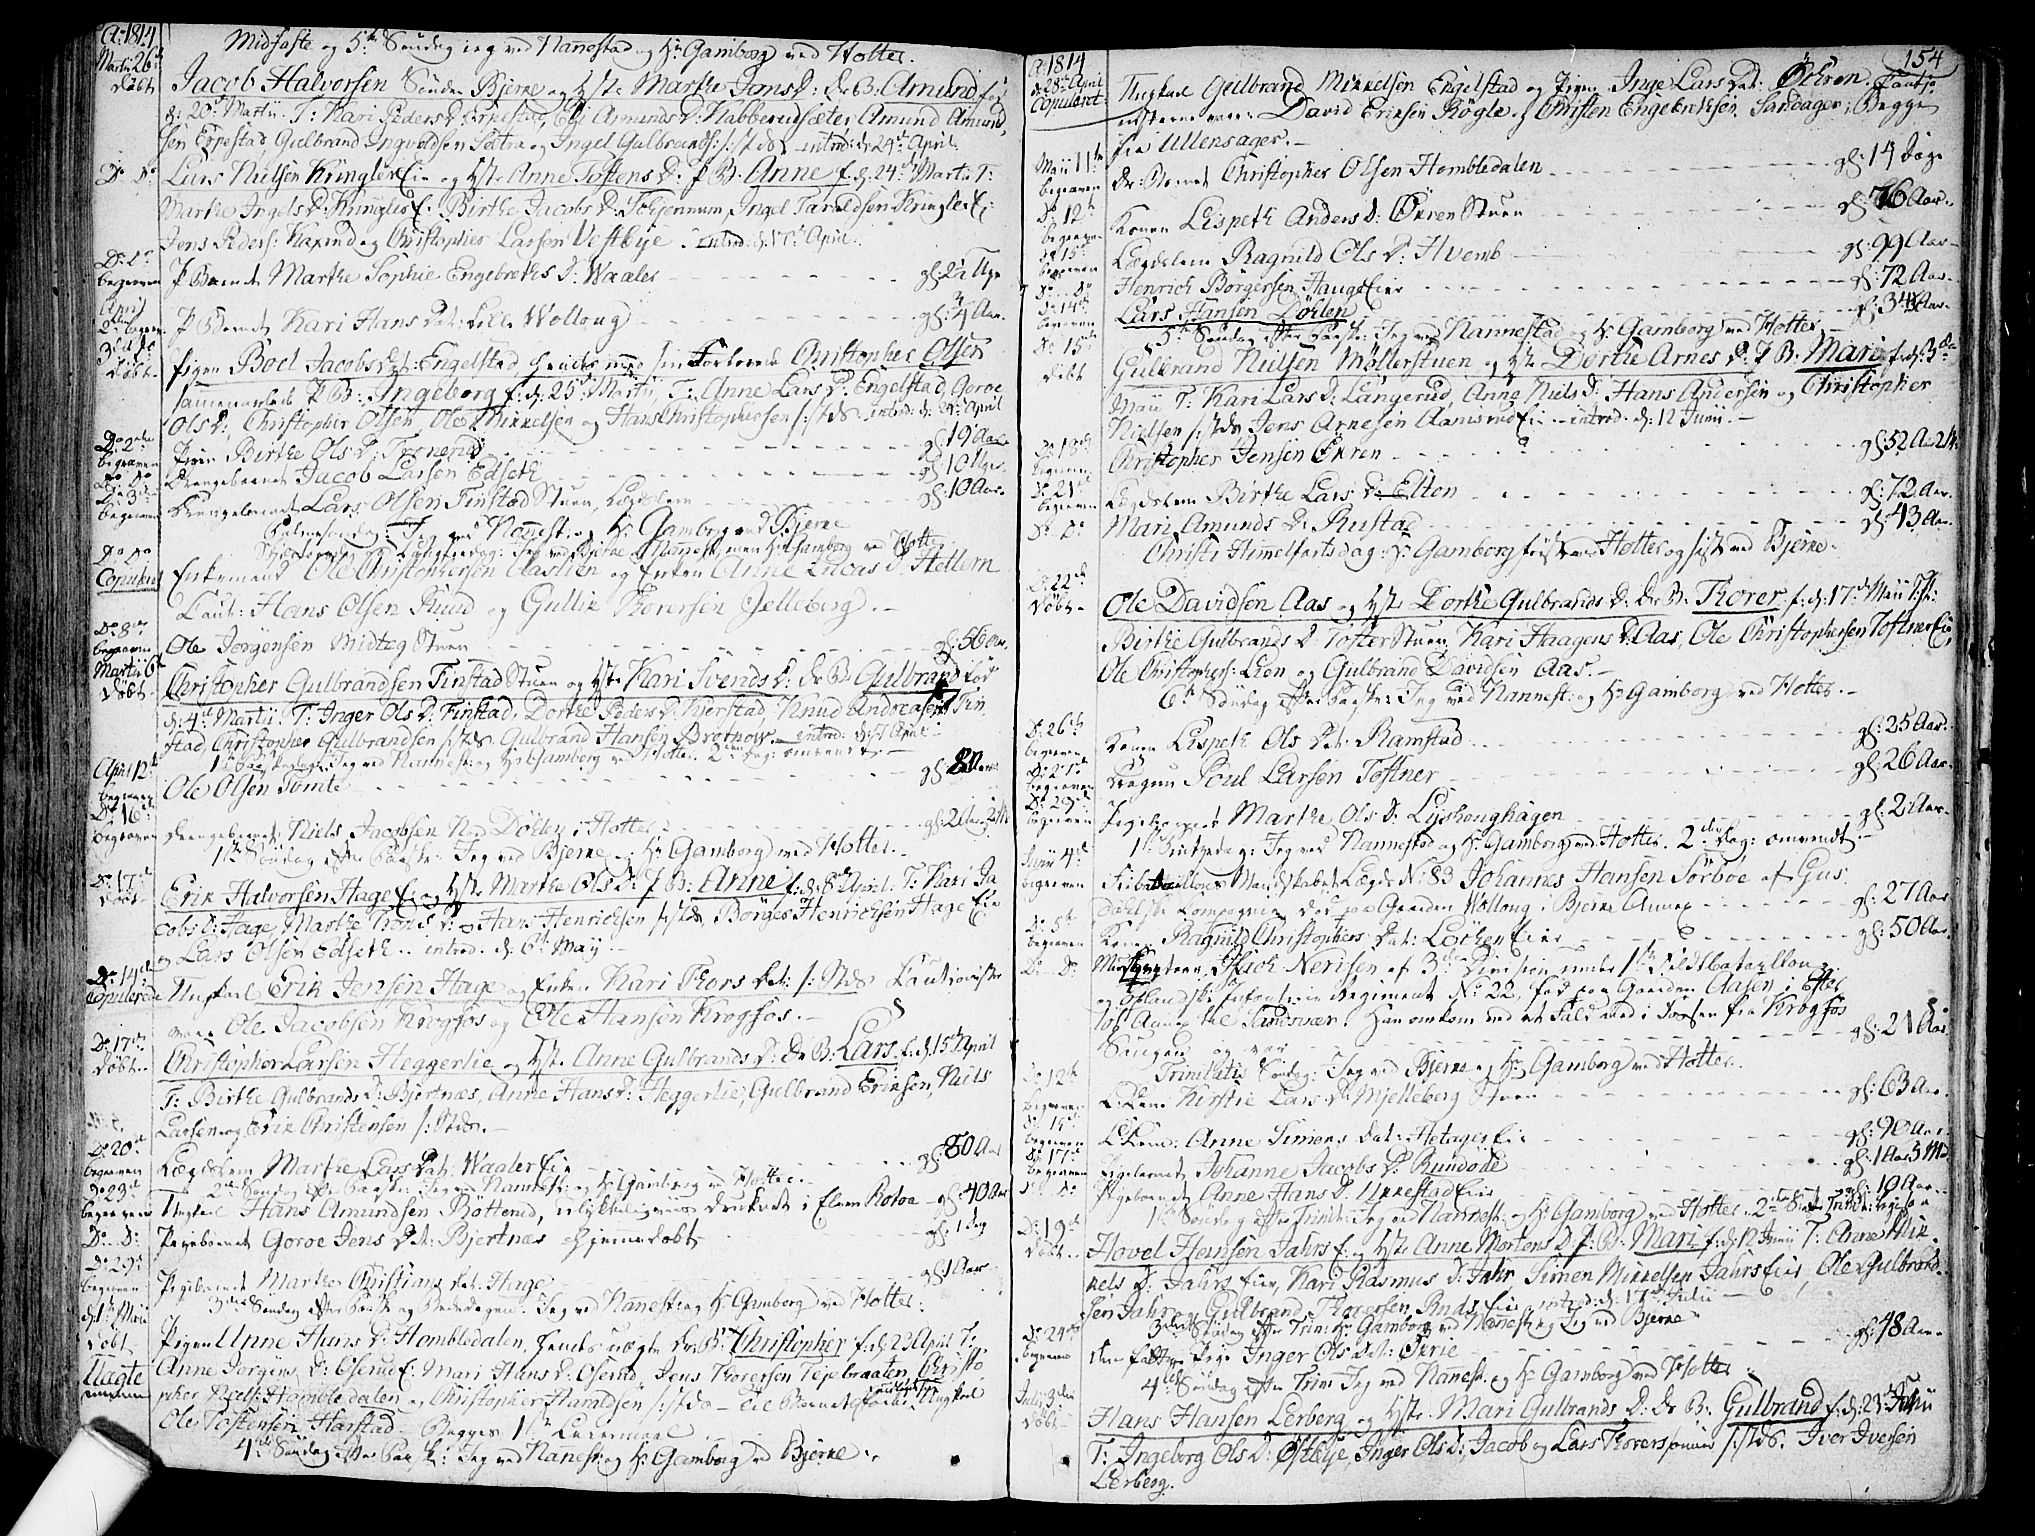 A: 1814
Midfaste og 5te Søndag jeg ved Nannestad og Hr Gamborg ved Holter.
Martii 26de
døbt
Jacob Halvorsen Søndre Bjerne og Hste Marthe Jans D: Dr B: Amund
d: 20de Martii. T: Kari Peders D: Eppestad, Eli Amunds D: Kabberudsæter, Amund Amund
sen Eppestad Gulbrand Ingvoldsen Sottra og Ingel Gulbrands: s: Stds introd: d: 24de April
Do Do
Lars Nielsen Kringler Eie og Hste Anne Tostens D: P B: Anne f. d: 24de Martii T:
Marthe Ingels D: Kringler E. Birthe Jacobs D: Ingel Taraldsen Kringler Ei
Jens Peders: og Christopher Larsen Vestbye. introd: d: 17de April.
begraven
P Barnet Marthe Sophie Engebreths D: Waaler gl: 2 Uger
April
P Barnet Kari Hans Dat: Lille Wolloug gl: 3/4 Aar.
døbt
Pigen Boel Jacobs Dat: Engelstad hendes med sin Forlovede Christopher Olsen
sammenavlede P B: Ingeborg f. d: 25de Martii, T: Anne Lars D: Engelstad, Goroe
Ols D:, Christopher Olsen, Ole Mikkelsen og Hans Christophersen s: Stds. introd: d: 24de April
begraven
Pigen Birthe Ols D: Trenerud gl: 19 Aar
Drengebarnet Jacob Larsen Edseth gl: 10 Uger
begraven
Drengebarnet Lars Olsen Finstad Stuen, Lægdelem gl: 10 Aar.
Palmesøndag: Jeg ved Nannest: og Hr Gamborg ved Bjerne
Skjærtorsdag og Langfredag: Jeg ved Bjerne og Nannest, men Hr Gamborg ved Holter.
Do Do
Copuleret
Enkemand Ole Christophersen Aaslien og Enken Anne Lucas D: Hellern
Caut: Hans Olsen Ruud og Gullik Thorersen Gjelleberg.
Do 8de
begraven
Ole Jørgensen Midteg Stuen gl: 56 Aar.
Martii 6te
Døbt
Christopher Gulbrandsen Finstad Stuen og Hste Kari Svends D: Dr B: Gulbrand
d: 4de Martii. T: Inger Ols D: Finstad, Dorthe Peders D: Kierstad, Knud Andreasen Fin
stad, Christopher Gulbrandsen s: Stds Gulbrand Hansen Brotnow. introd: d: 17 April
1ste Paaskedag: Jeg ved Nannest: og Hr Gamborg ved Holter. 2den Dag: omvendt
April 12te
begraven
Ole Olsen Tomte gl: 80 Aar
Do 16de
begraven
Drengebarnet Niels Jacobsen Nord Døhlen i Holter gl: 2 Aar
1ste Søndag efter Paaske: Jeg ved Bjerne og Hr Gamborg ved Holter.
Do 17de
døbt
Erik Halvorsen Hage Ei og Hste Marthe Ols D: P B: Anne f. d: 8de April. T: Kari Ja
cobs D: Hage, Marthe Thors D: og Hans Henrichsen s: Stds, Børger Henrichsen Hage Eie
og Lars Olsen Edseth. introd. d: 6te May.
Do 14de
copulerede
Ungkarl Erik Jensen Hage og Enken Kari Thors Dat: s: Stds Cautionister
vare Ole Jacobsen Krogfos og Ole Hansen Krogfos.
Do 17de
Døbt
Christopher Larsen Heggerlie og Hste Anne Gulbrands D: Dr B: Lars f. d: 15de April
T: Birthe Gulbrands D: Bjertnæs, Anne Hans D: Heggerlie, Gulbrand Eriksen, Niels
Larsen og Erik Christensen s: Stds.
Do 20de
begraven
Lægdelem Marthe Lars Dat: Waaler Eie gl: 80 Aar
2den Søndag efter Paaske: Jeg ved Nannest: og Hr Gamborg ved Holter.
Do 23de
begraven
Ungkarl Hans Amundsen Røtterud, ulykkeligviis druknet i Elven Rotoe gl: 40 Aar
Do Do
Pigebarnet Goroe Jens Dat: Bjertnæs Hjemmedøbt gl: 1 dag
Do 29de
begraven
Pigebarnet Marthe Christians Dat: Hage gl: 1 Aar
3die Søndag efter Paaske og Bededagen: Jeg ved Nannest: og Hr Gamborg ved Holter.
d: 1ste Maii
Døbt
Uægte
Pigen Anne Hans D: Hombledalen, hendes uægte Dr B: Christopher f. d: 23 April T:
Anne Jørgens D: Oserud E: Mari Hans D: Oserud, Jens Thorersen Tejebraaten, Christo
pher Hombledalen og Christopher Haraldsen s: Stds. Til Barnets Fader udlagt Ungkarl
Ole Tostensen Harstad. Begges 1ste Leiermaal
4de Søndag efter Paaske: Jeg ved Nannest: og Hr Gamborg ved Bjerne.
154
A: 1814
d: 28de April
Copuleret
Ungkarl Gulbrand Mikkelsen Engelstad og Pigen Inge Lars Dat: Øchren. Cautio
nisterne vare: David Eriksen Røgle og Christen Engebretsen Sandager, Begge
fra Ullensager.
Maii 11te
begraven
Dr Barnet Christopher Olsen Hombledalen gl: 14 Dage
Do 12te
begraven
Konen Lispeth Anders D: Økren Stuen gl: 76 Aar.
begraven
Lægdelem Ragnild Ols D: Hvemb gl: 99 Aar
Do Do
Henrich Børgersen Hauger Eier gl: 72 Aar
Do 14de
begraven
Lars Hansen Døhlen gl: 34 Aar.
5te Søndag efter Paaske: Jeg ved Nannestad og Hr Gamborg ved Holter
Do 15de
døbt
Gulbrand Nielsen Møllerstuen og Hste Dorthe Arnes D: P B: Mari f. d: 3die
Maii T: Kari Lars D: Langerud, Anne Niels D: Hans Andersen og Christopher
Nielsen s: Stds Jens Arnesen Aamrud Ei introd. d: 12 Junii.
Do 18de
begraven
Christopher Jensen Økren gl: 52 Aar
Do 21de
begraven
Lægdelem Birthe Lars D: Elton gl: 72 Aar.
Do Do
Mari Amunds D: Rustad gl: 43 Aar.
Christi Himmelfartsdag: Hr Gamborg først ved Holter og sidst ved Bjerne.
Do 22de
Døbt
Ole Davidsen Aas og Hste Dorthe Gulbrands D: Dr B: Thorer f. d: 17de Maii T:
Birthe Gulbrands D: Tofter Stuen, Kari Haagens D: Aas, Ole Christophersen Toftner Ei
Ole Christophers: Lien og Gulbrand Davidsen Aas.
6te Søndag efter Paaske: Jeg ved Nannest: og Hr Gamborg ved Holter.
Do 26de
begraven
Konen Lispeth Ols Dat: Ramstad gl: 25 Aar.
Do 27de
begraven
Dragun Poul Larsen Toftner gl: 26 Aar.
Do 29de
begraven
Pigebarnet Marthe Ols D: Lyshoughagen gl: 2 Aar.
1ste Pintsedag: Jeg ved Nannestad og Hr Gamborg ved Holter. 2den Dag: omvendt
Junii 4de
begraven
Mandskabet Lægds No 83 Johannes Hansen Sørboe af Gus
dahlske Compagnie, død paa Gaarden Wolloug i Bjerne Annex gl: 27 Aar
Do 5te
begraven
Konen Ragnild Christophers Dat: Lochen Eier gl: 50 Aar.
Do Do
Musqueteer Isach Nerisen af 3die Division under 1ste Feldtbataillon
og Oplandske Infanterie Regiment No 22, fød paa Gaarden Aasen i Efte
løt Annex til Sandsvær. Han omkom ved et Fald ned i Fossen fra Krogfos
Saugen og var gl: 21 Aar
Trinitatis Søndag: Jeg ved Bjerne og Hr Gamborg ved Holter.
Do 12te
begraven
Kirstie Lars D: Mjelleberg Stuen gl: 63 Aar.
Do 15de
begraven
Anne Simens Dat: Hotager Eie gl: 90 Aar.
Do 17de
begraven
Pigebarnet Johanne Jacobs D: Rundøde gl: 1 Aar 3 Md
Do Do
Pigebarnet Anne Hans D: Ukkestad Eier gl: 10 Aar.
1ste Søndag efter Trinit: Jeg ved Nannest: og Hr Gamborg ved Holter. 2den Sønd. Trinit:
Do 19de
Døbt
Hovel Hansen Jahrs E: og Hste Anne Mortens D: P: B: Mari f. d: 12 Junii T: Anne Mik
kels D: Jahrs Eier, Kari Rasmus D: Jahr Simen Mikkelsen Jahrs Eier, Ole Gulbrand
sen Jahr og Gulbrand Thorersen Rudz Eie introd: d: 17de Julii
3die Søndag efter Trin: Hr Gamborg ved Nannest: og Jeg ved Bjerne
Do 24de
begraven
den fattige Pige Inger Ols Dat: Økrie gl: 48 Aar.
4de Søndag efter Trin: Jeg ved Nannest: og Hr Gamborg ved Holter
Julii 3die
Døbt
Hans Hansen Lerberg og Hste Mari Gulbrands D: Dr B: Gulbrand f. d: 23de Junii
T: Ingeborg Ols D: Østbye, Inger Ols D: Jacob og Lars Thorersønner s: Stds. Iver Iversen
Lerberg.